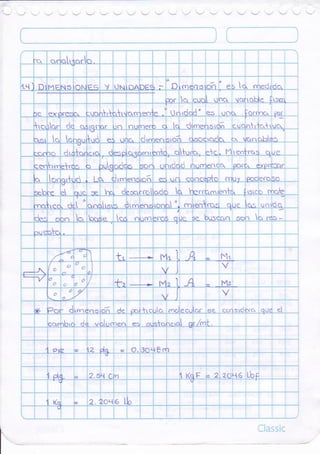 ra analizarlo.
1.4) DIMENSIONES Y UNIDADES : "Dimension" es la medida
por la cual una variable física
se expresa cuantitativamente. "Unidad" es una forma par
ticular de asignar un numero a la dimensión cuantitativa,
asi la longuitud es una dimensión asociada a variables
como distancia, desplazamiento, altura, etc. Mientras que
centimetros o pulgadas son unidad numerica para expresar
la longitud. La dimensión es un concepto muy poderoso
sobre el que se ha desarrollado la herramienta fisica mate
matica del "analisis dimensional", mientras que las unida
des son la base, los numeros que se buscan son la res-
puesta.
t₁ → M₁ ρ₁ = M₁
V V
t₂ → M₂ ρ₂ = M₂
V V
* Por dimension de particula molecular se considera que el
cambio de volumen es sustancial gr/ml.
1 pie = 12 plg = 0.3048m
1 plg. = 2.54 cm 1 KgF = 2.2046 LbF
1 Kg = 2.2046 lb
Classic